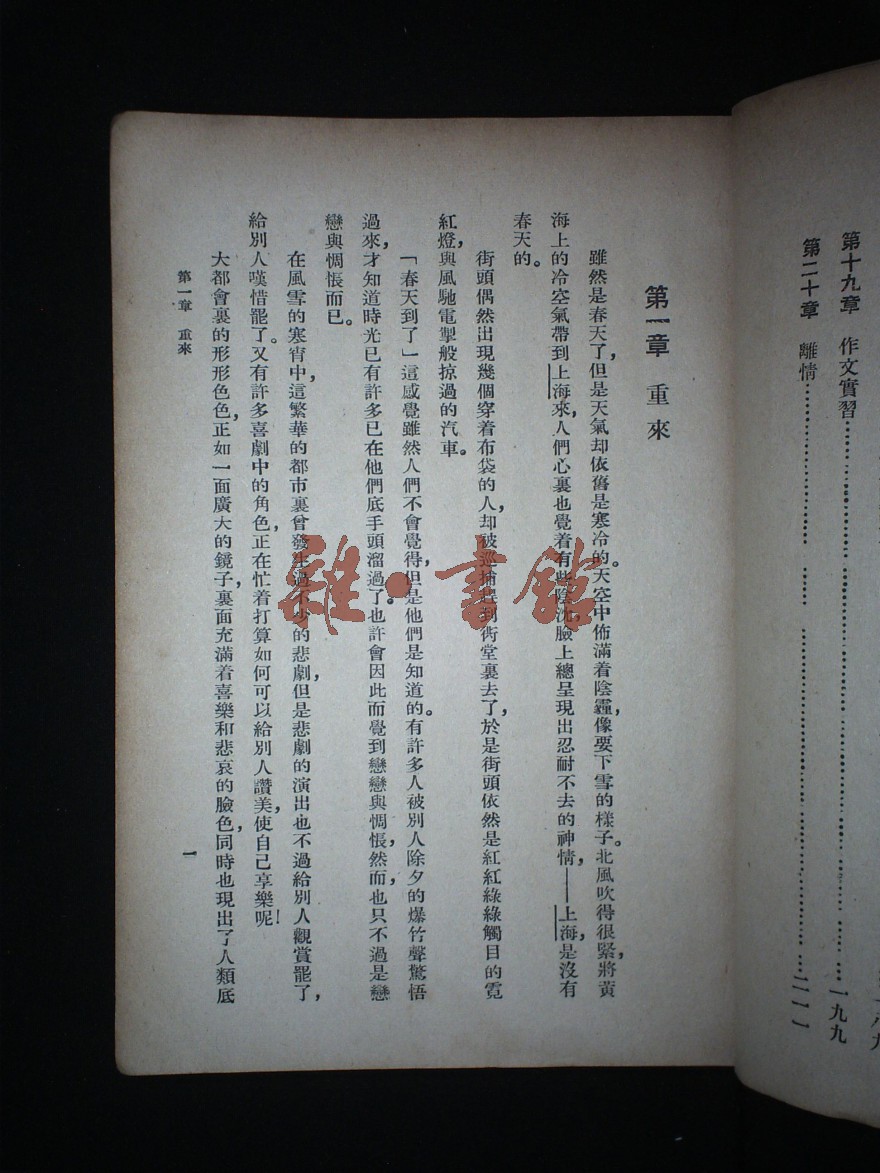 第十九章　作文實習……一九九
第二十章　離情……二一一
第一章　重來
雖然是春天了，但是天氣却依舊是寒冷的。天空中佈滿着陰霾，像要下雪的樣子。北風吹得很緊，將黃
海上的冷空氣帶到上海來，人們心裏也覺着有些陰沈，臉上總呈現出忍耐不去的神情，——上海，是沒有
春天的。
街頭偶然出現幾個穿着布袋的人，却被巡捕趕到衖堂裏去了，於是街頭依然是紅紅綠綠觸目的霓
紅燈，與風馳電掣般掠過的汽車。
「春天到了」這感覺雖然人們不會覺得，但是他們是知道的。有許多人被別人除夕的爆竹聲驚悟
過來，才知道時光已有許多已在他們底手頭溜過了。也許會因此而覺到戀戀與惆悵，然而，也只不過是戀
戀與惆悵而已。
在風雪的寒宵中，這繁華的都市裏曾發生過不少的悲劇，但是悲劇的演出也不過給別人觀賞罷了，
給別人嘆惜罷了。又有許多喜劇中的角色，正在忙着打算如何可以給別人讚美，使自己享樂呢！
大都會裏的形形色色，正如一面廣大的鏡子，裏面充滿着喜樂和悲哀的臉色，同時也現出了人類底
第一章　重來
一
雜·書館